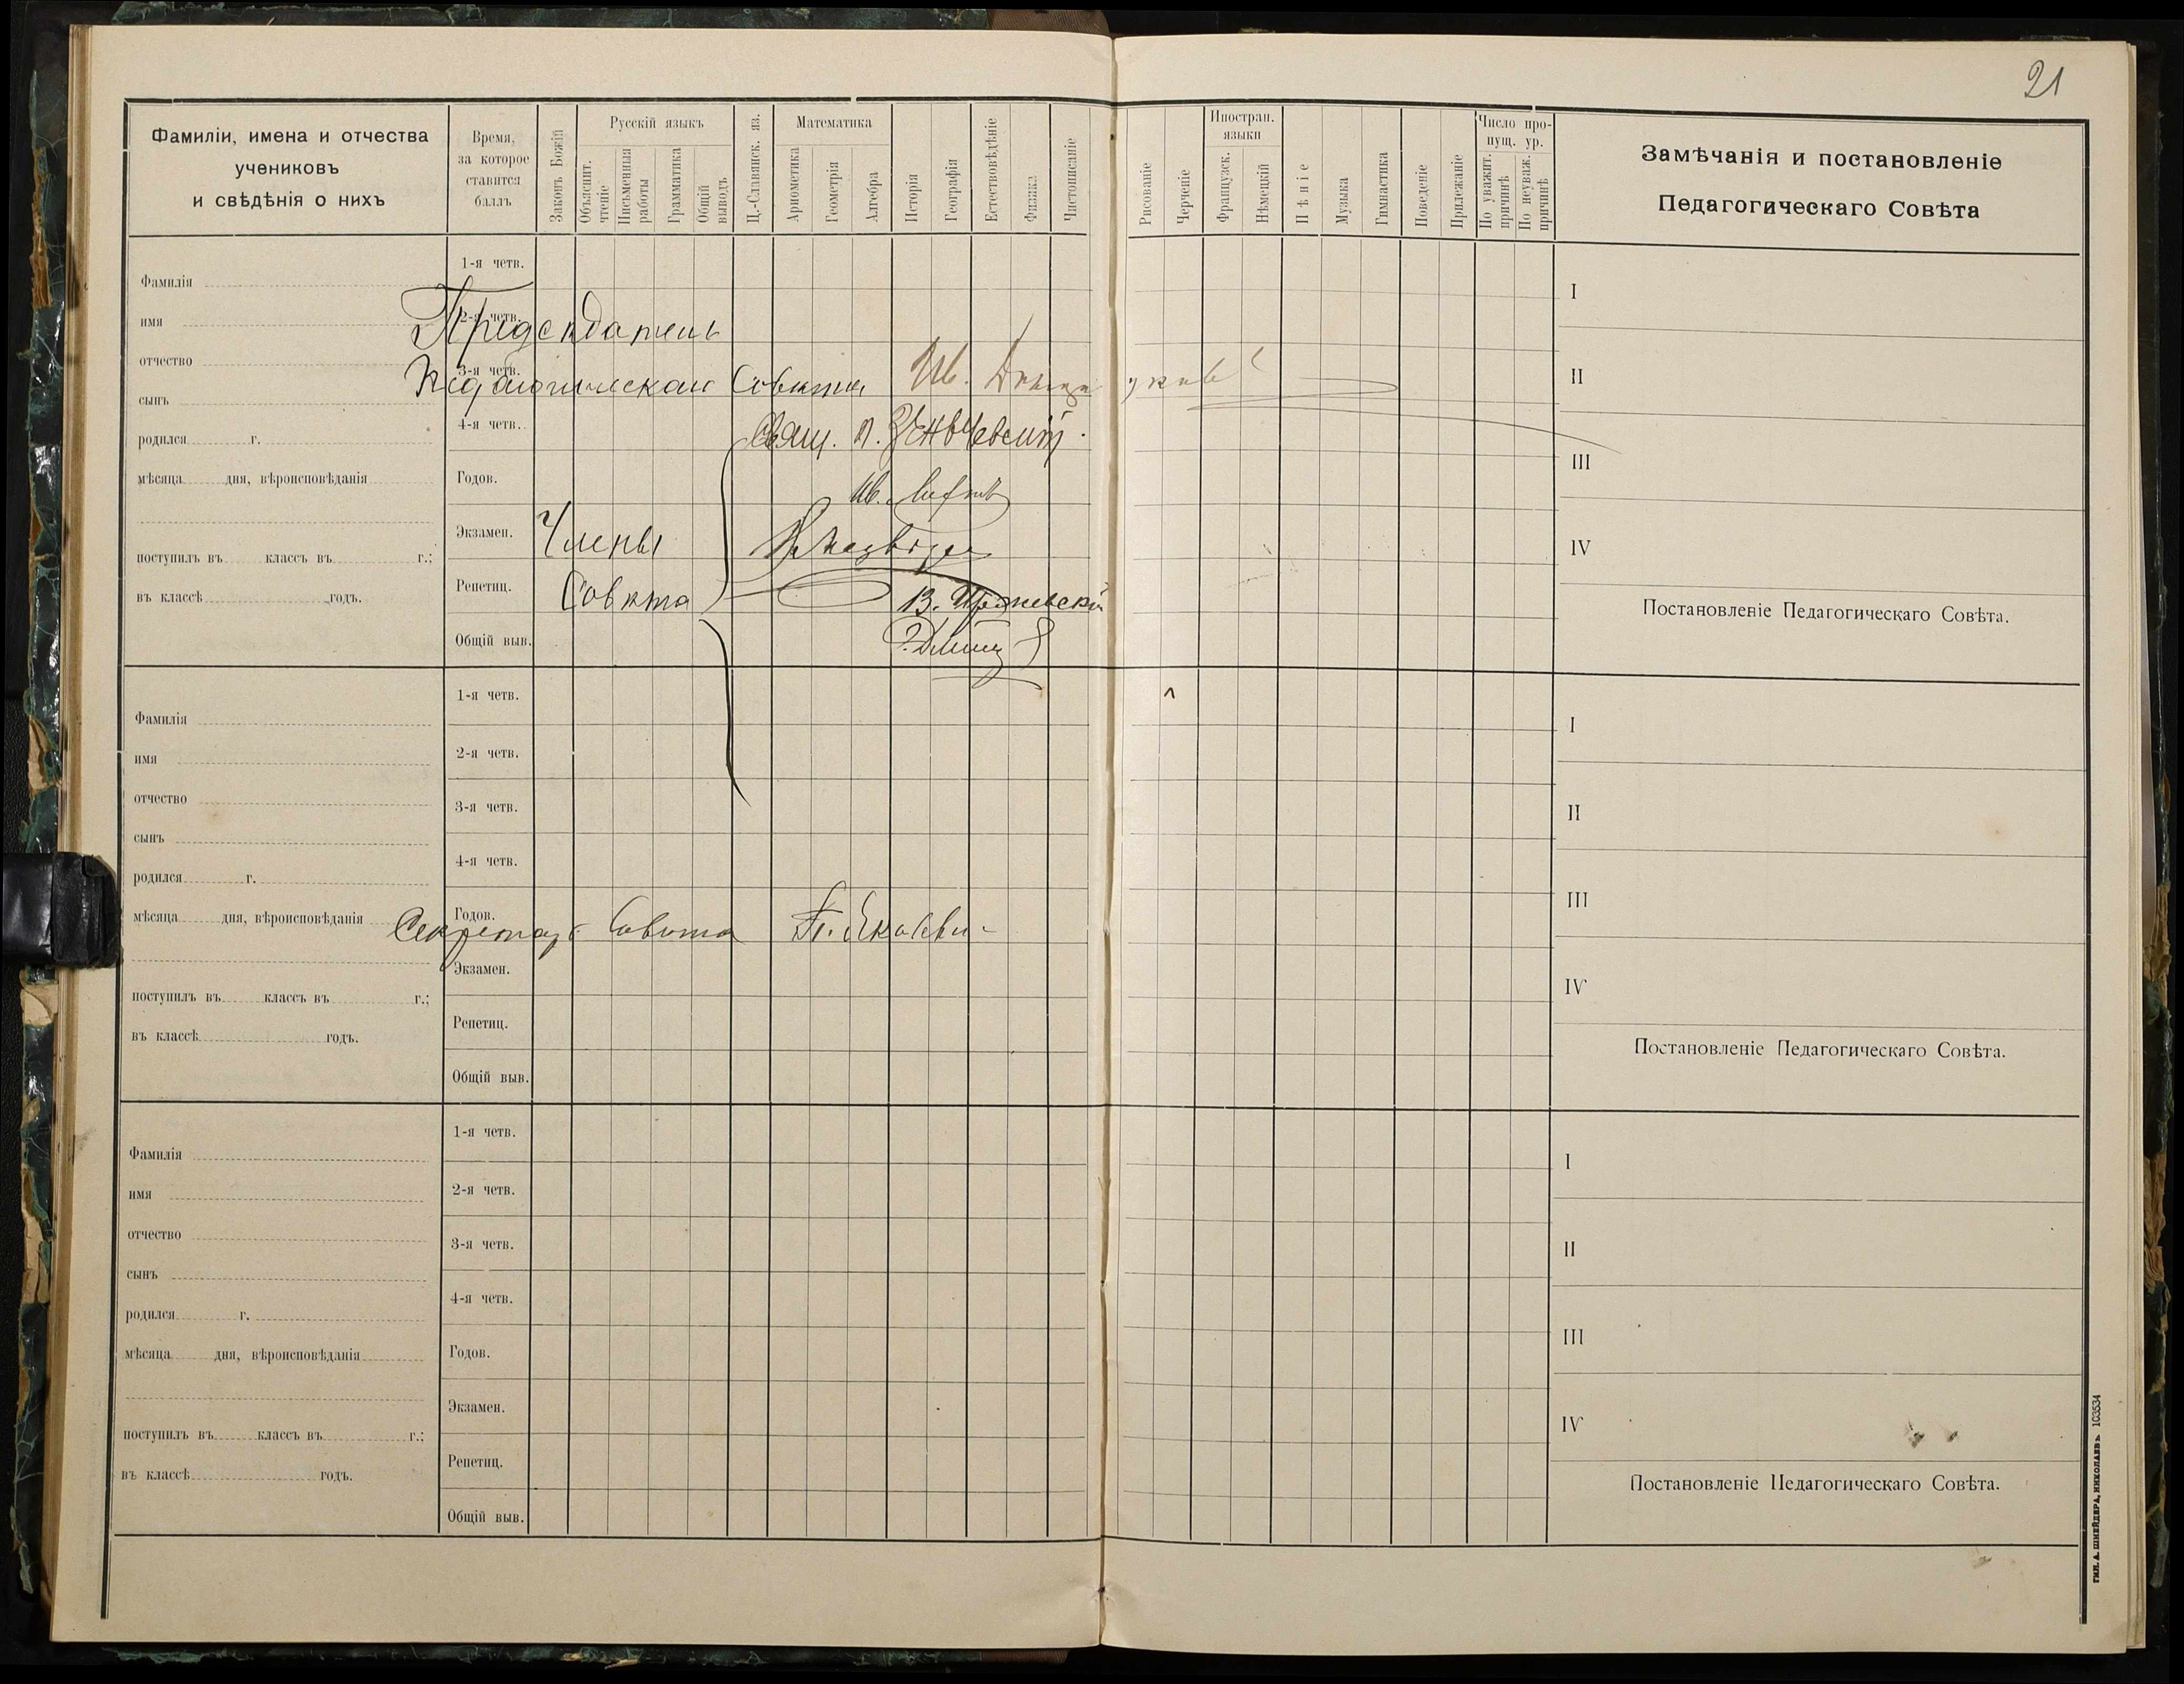 21
Фамиліи, имена и отчества
учениковъ
и свѣдѣнія о нихъ
Время,
за которое
ставится
баллъ
Законъ Божій
Русскій языкъ
Объяснит.
чтеніе
Письменныя
работы
Грамматика
Общій
выводъ
Ц.-Славянск. яз.
Математика
Ариѳметика
Геометрія
Алгебра
Исторія
Географія
Естествовѣдѣніе
Физика
Чистописаніе
Рисованіе
Черченіе
Иностран.
языки
Французск.
Нѣмецкій
Пѣніе
Музыка
Гимнастика
Поведеніе
Прилежаніе
Число про-
пущ. ур.
По уважит.
причинѣ
По неуваж.
причинѣ
Замѣчанія и постановленіе
Педагогическаго Совѣта
Фамилія
имя
отчество
сынъ
родился г.
мѣсяца дня, вѣроисповѣданія
поступилъ въ классъ въ г.;
въ классѣ годъ.
1-я четв.
2-я четв.
3-я четв.
4-я четв.
Годов.
Экзамен.
Репетиц.
Общій выв.
Предсѣдатель
Педагогическаго Совѣта Ив.
Свящ. П.
Ив.
Члены
Совѣта
В.
I
II
III
IV
Постановленіе Педагогическаго Совѣта.
Фамилія
имя
отчество
сынъ
родился г.
мѣсяца дня, вѣроисповѣданія
поступилъ въ классъ въ г.;
въ классѣ годъ.
1-я четв.
2-я четв.
3-я четв.
4-я четв.
Годов.
Экзамен.
Репетиц.
Общій выв.
Секретарь Совѣта
I
II
III
IV
Постановленіе Педагогическаго Совѣта.
Фамилія
имя
отчество
сынъ
родился г.
мѣсяца дня, вѣроисповѣданія
поступилъ въ классъ въ г.;
въ классѣ годъ.
1-я четв.
2-я четв.
3-я четв.
4-я четв.
Годов.
Экзамен.
Репетиц.
Общій выв.
I
II
III
IV
Постановленіе Педагогическаго Совѣта.
ТИП. А. ШНЕЙДЕРА, НИКОЛАЕВЪ. 103534